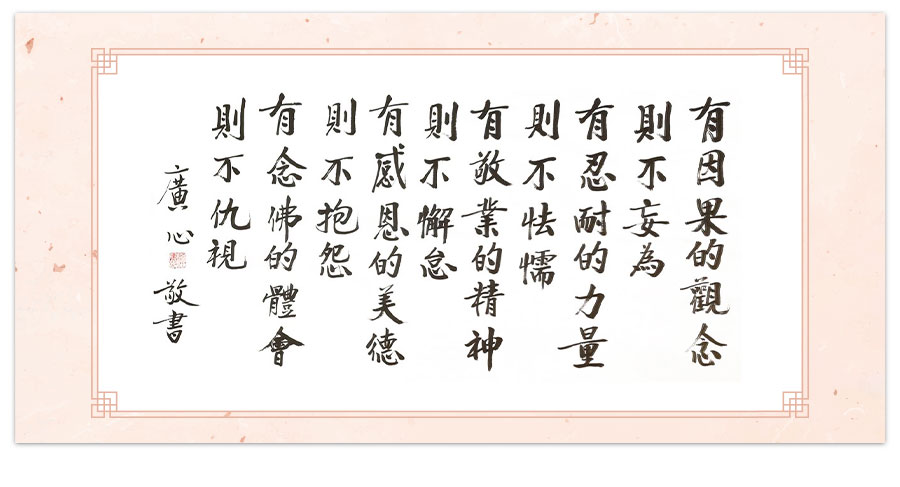 有因果的觀念
則不妄為
有忍耐的力量
則不怯懦
有敬業的精神
則不懈怠
有感恩的美德
則不抱怨
有念佛的體會
則不仇視
廣心敬書